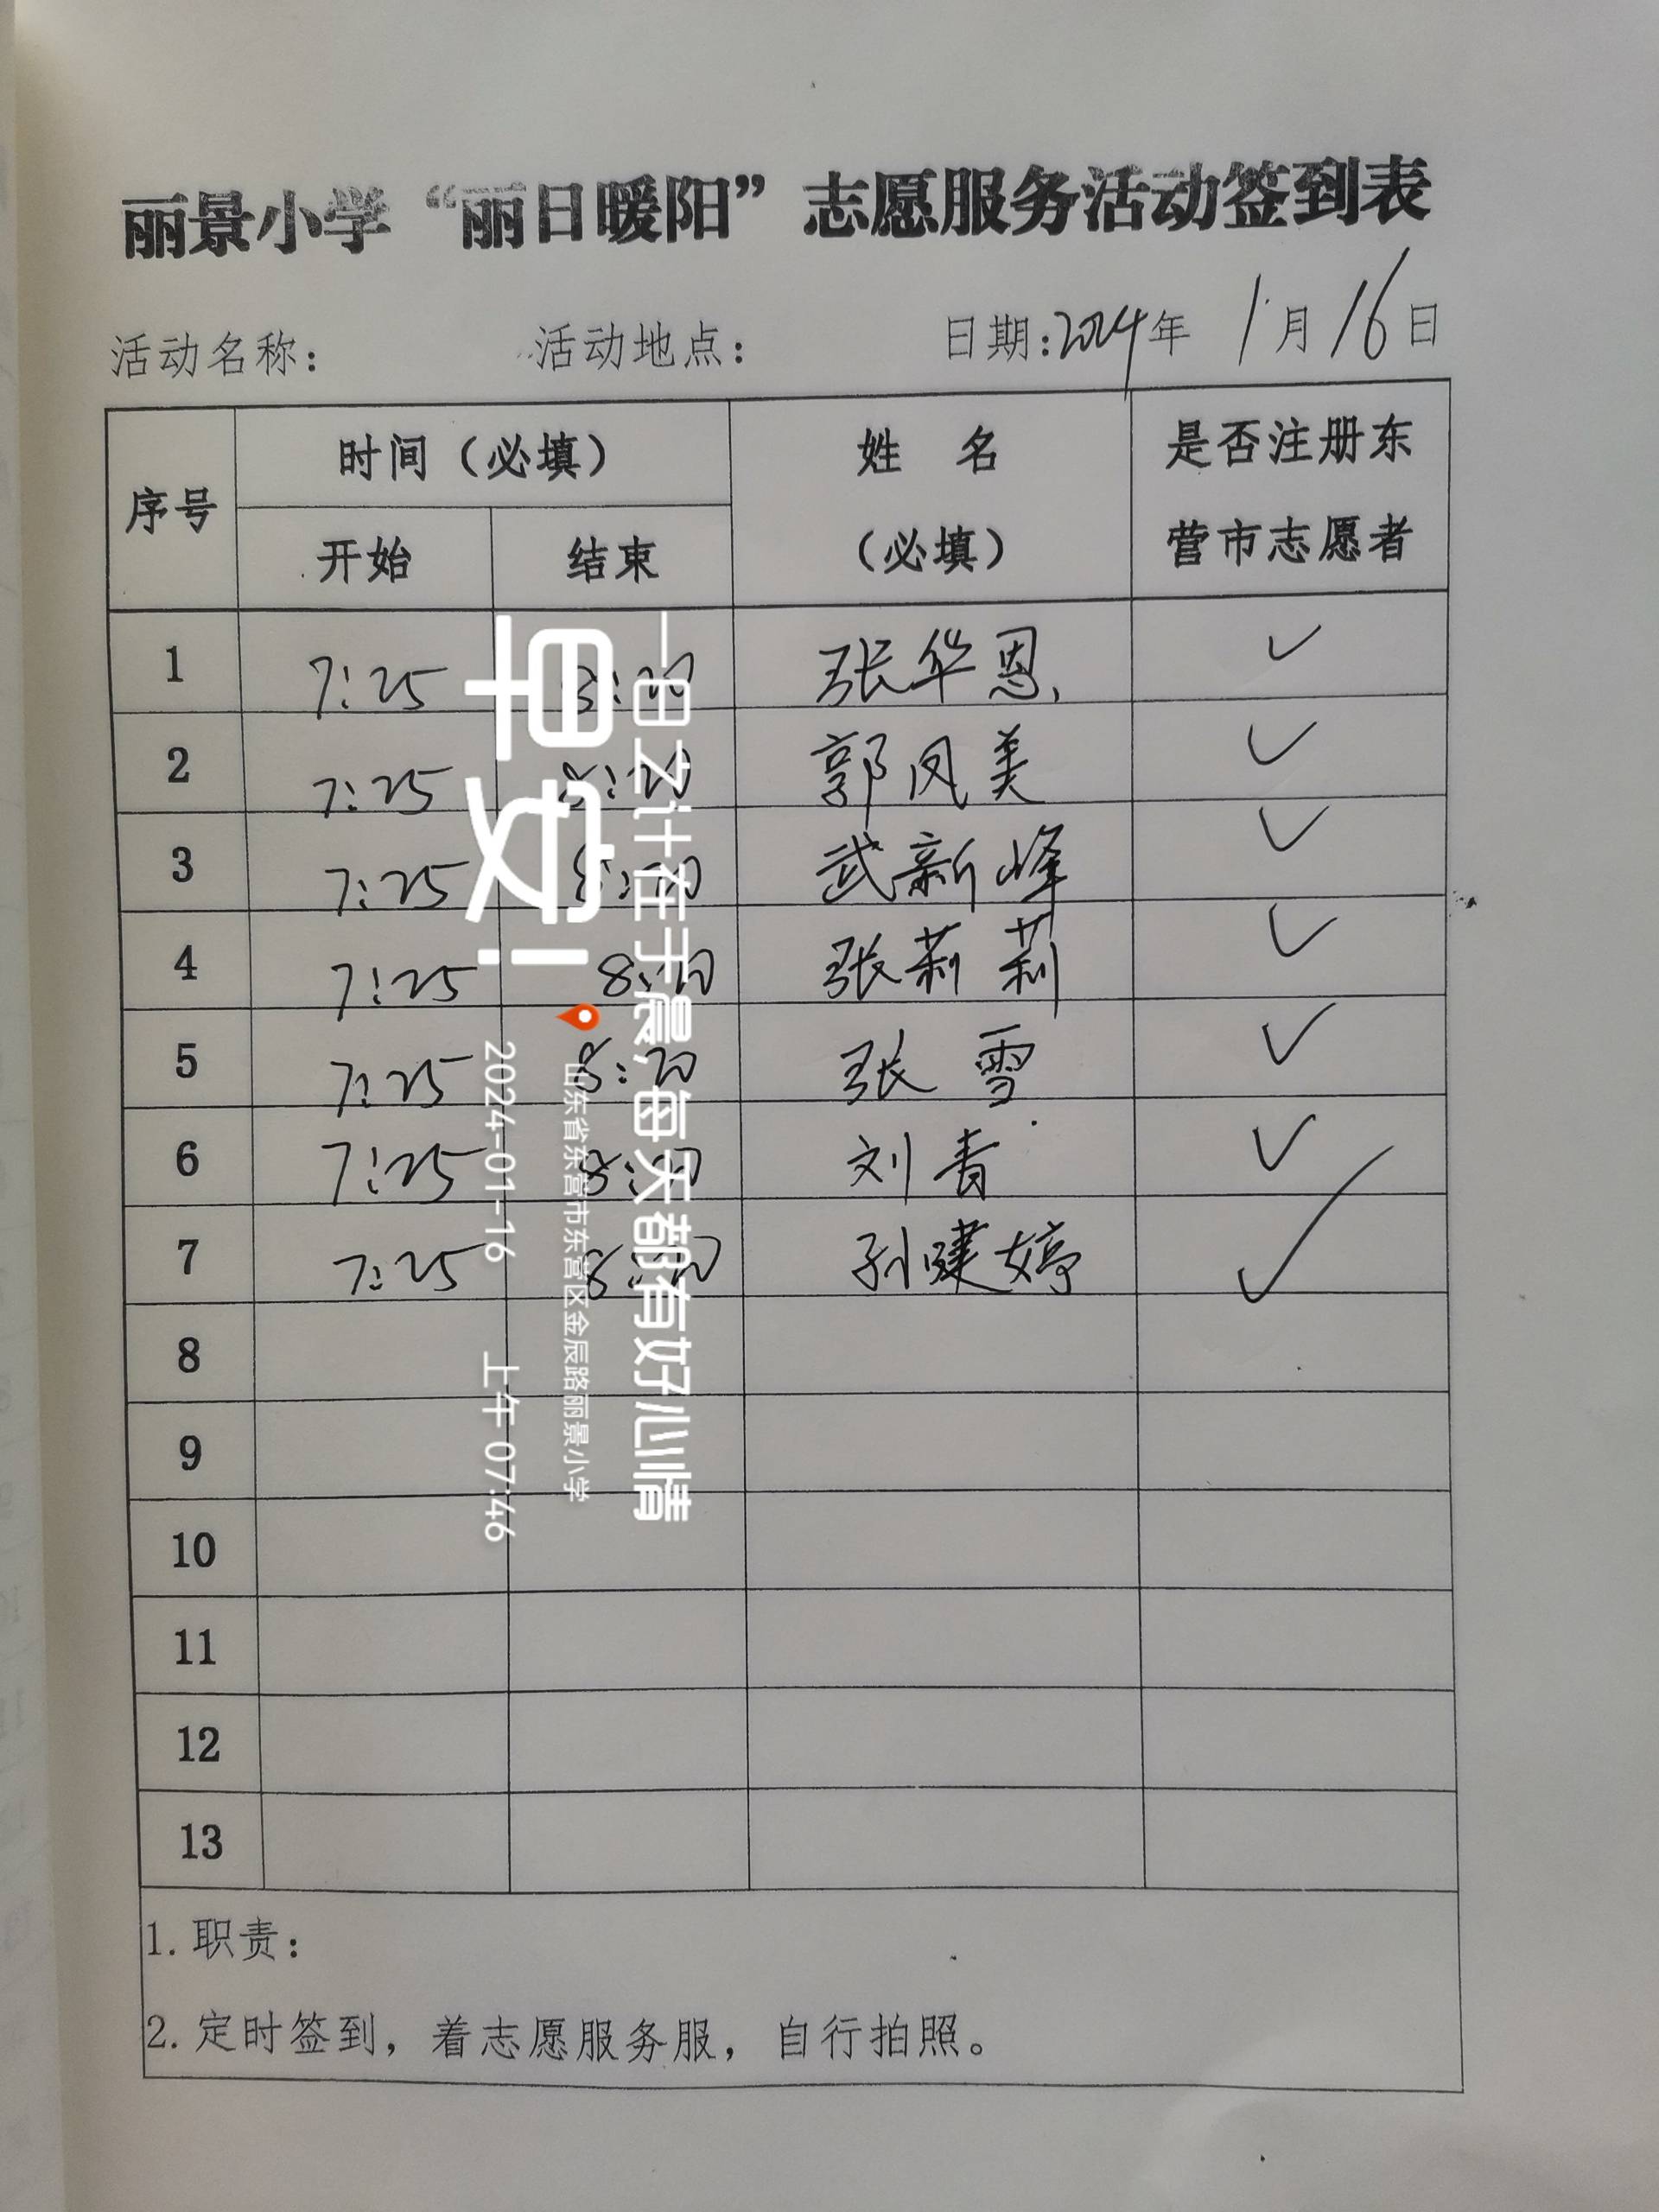 丽景小学“丽日暖阳”志愿服务活动签到表
活动名称： 活动地点： 日期:2024年 1月16日
序号 时间（必填） 姓 名（必填） 是否注册东营市志愿者
开始 结束
1 7:25 8:20 张华恩 ✓
2 7:25 8:20 郭凤美 ✓
3 7:25 8:20 武新峰 ✓
4 7:25 8:20 张莉莉 ✓
5 7:25 8:20 张雪 ✓
6 7:25 8:20 刘青 ✓
7 7:25 8:20 孙建婷 ✓
8
9
10
11
12
13
1.职责：
2.定时签到，着志愿服务服，自行拍照。
一日之计在于晨,每天都有好心情
早安!
山东省东营市东营区金辰路丽景小学
2024-01-16 上午 07:46